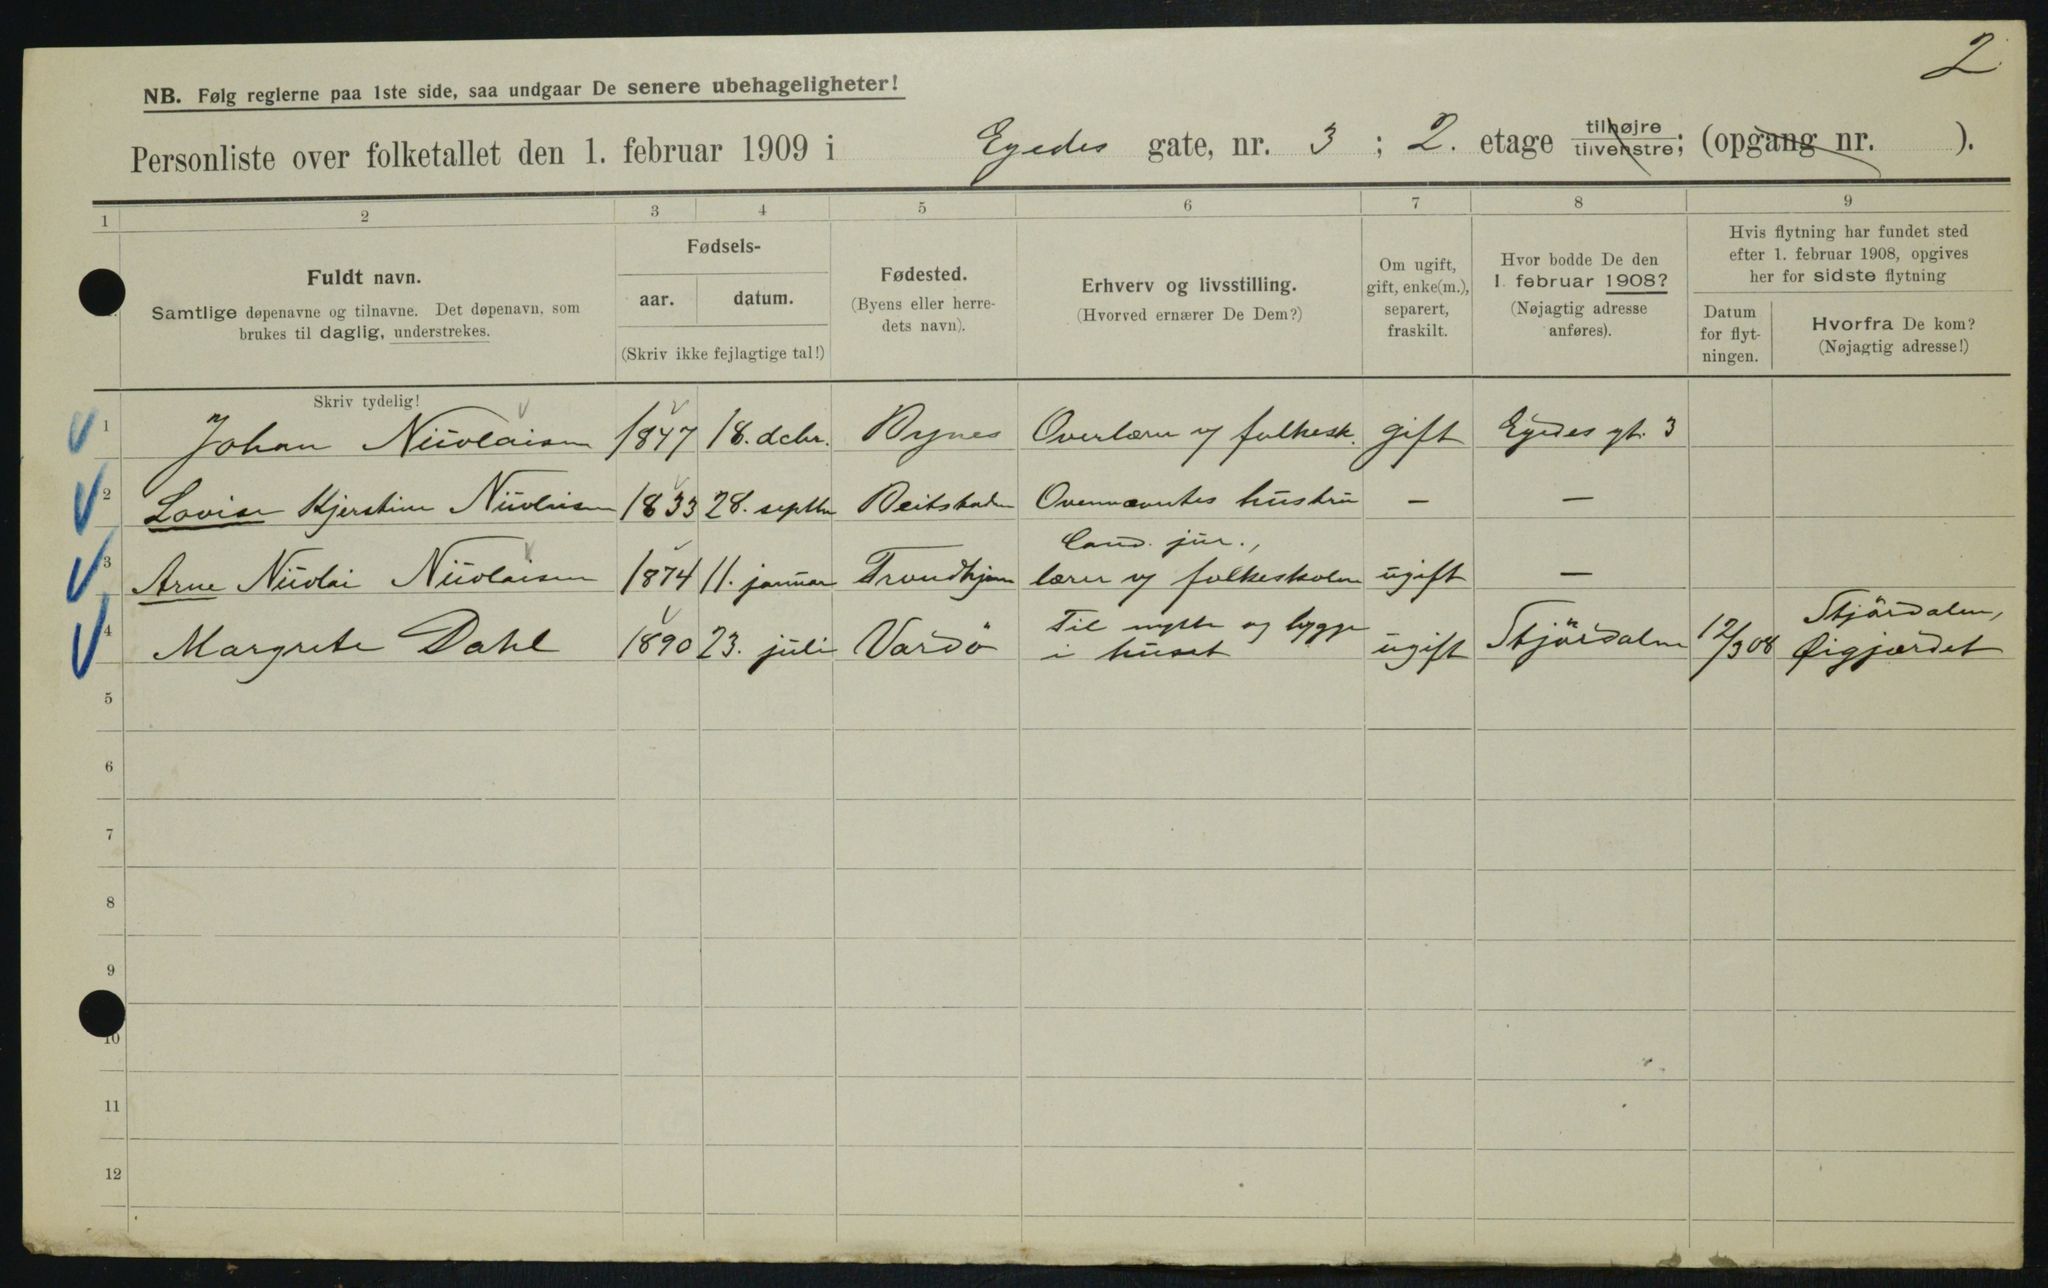 2
NB. Følg reglerne paa 1ste side, saa undgaar De senere ubehageligheter!
Personliste over folketallet den 1. februar 1909 i Egedes gate, nr. 3 ; 2. etage tilhøjre tilvenstre; (opgang nr. ).
1 2 3 4 5 6 7 8 9
Fuldt navn.
Samtlige døpenavne og tilnavne. Det døpenavn, som
brukes til daglig, understrekes.
Fødsels-
aar. datum.
(Skriv ikke fejlagtige tal!)
Fødested.
(Byens eller herre-
dets navn).
Erhverv og livsstilling.
(Hvorved ernærer De Dem?)
Om ugift,
gift, enke(m.),
separert,
fraskilt.
Hvor bodde De den
1. februar 1908?
(Nøjagtig adresse
anføres).
Hvis flytning har fundet sted
efter 1. februar 1908, opgives
her for sidste flytning
Datum
for flyt-
ningen.
Hvorfra De kom?
(Nøjagtig adresse!)
Skriv tydelig!
1 Johan Nicolaisen 1847 18. dcbr. Bynes Overlærer v folkesk. gift Egedes gt. 3
2 Lovise Kjerstine Nicolaisen 1833 28. septbr Beitstaden Ovennævntes hustru – –
Cand. jur.,
3 Arne Nicolai Nicolaisen 1874 11. januar Trondhjem lærer v folkeskolen ugift –
4 Margrete Dahl 1890 23. juli Vardö Til nytte og hygge
i huset ugift Stjördalen 12/3 08 Stjördalen,
Øigjærdet
5
6
7
8
9
10
11
12